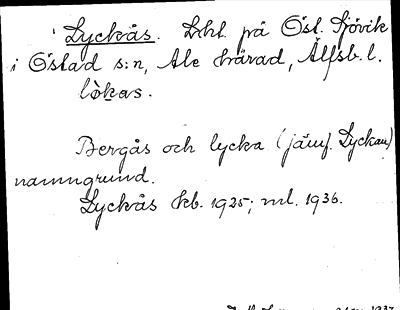 Lyckås. Lht. på Östl. Sjövik
i Östad s:n, Ale härad, Älfsb. l.
lò̀kas.
Bergås och lycka (jämf. Lyckan)
namngrund.
Lyckås kb. 1925; ml. 1936.